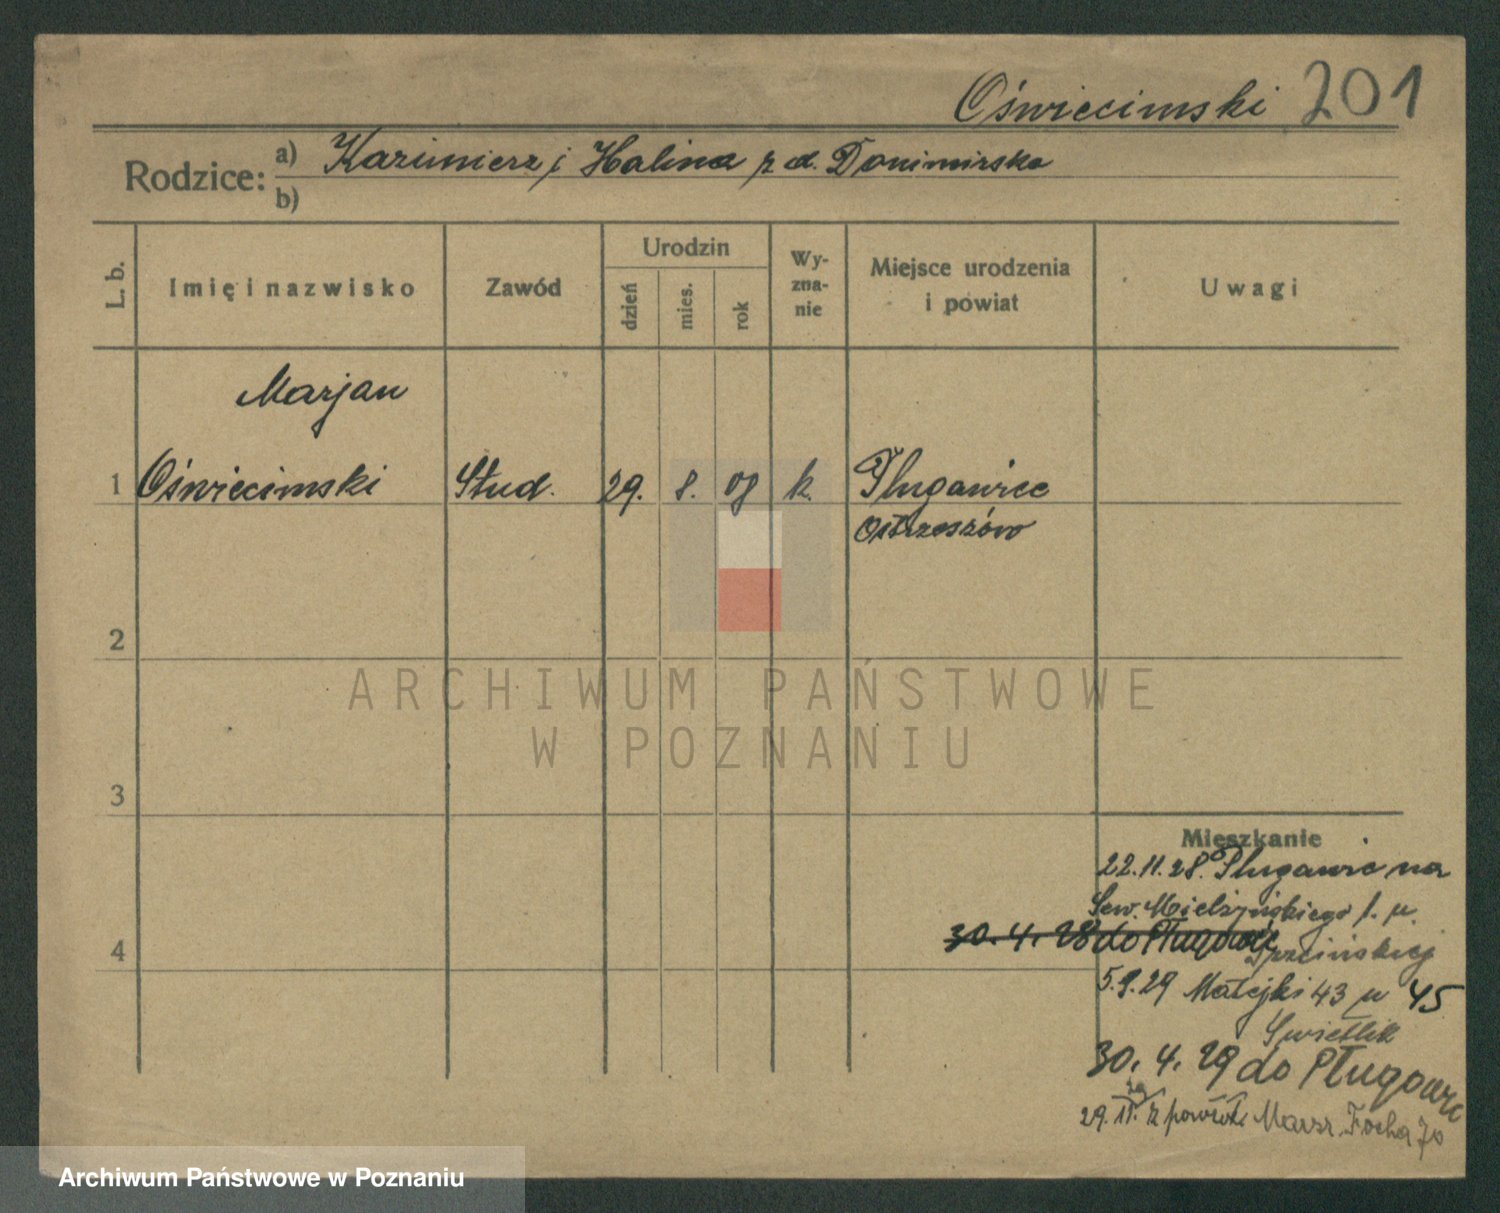 Oświecimski 201
Rodzice: a) Kazimierz i Halina z d. Donimirska
b)
L. b.
Imię i nazwisko
Zawód
Urodzin
dzień
mies.
rok
Wy-
zna-
nie
Miejsce urodzenia
i powiat
Uwagi
Marjan
1 Oświecimski Stud. 29. 8. 08 k. Pługawice
Ostrzeszów
2
3
4
Mieszkanie
22.11.28. Pługawic na
Sew. Mielżyńskiego 1. u.
30. 4. 28 do Pługawic
5.9.29 Matejki 43 u 45
Swietlik
30. 4. 29 do Pługawic
29. 11. z powrote Marsz. Focha 70
ARCHIWUM PAŃSTWOWE
W POZNANIU
Archiwum Państwowe w Poznaniu